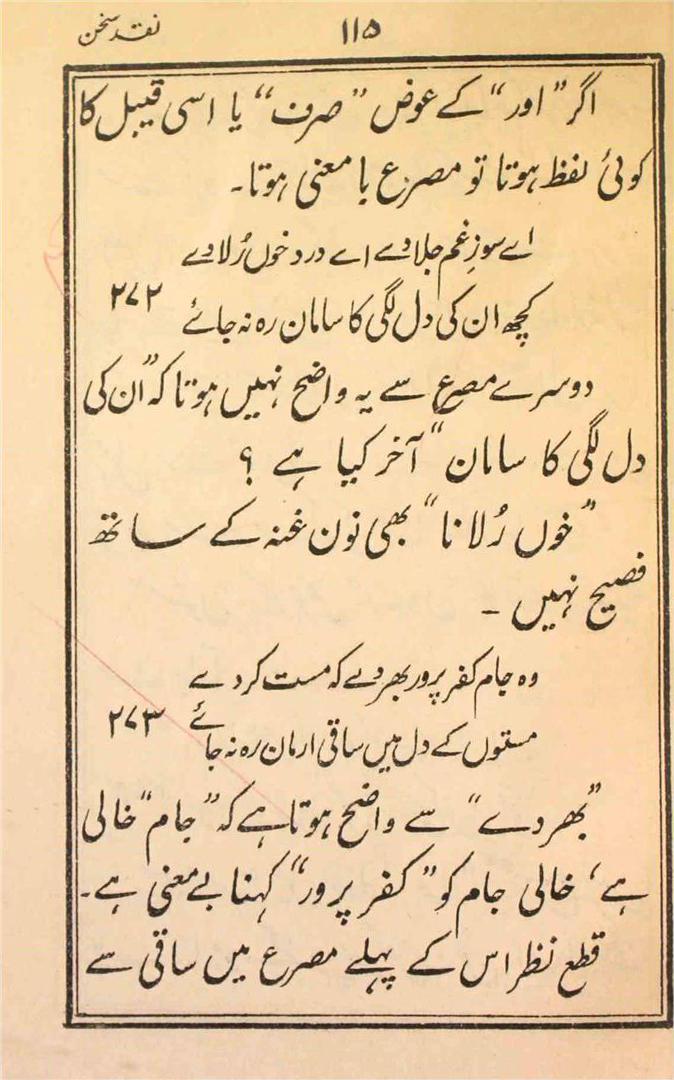 نقد سخن
۱۱۵
اگر ”اور“ کے عوض ”صرف“ یا اسی قبیل کا
کوئی لفظ ہوتا تو مصرع با معنی ہوتا۔
اے سوزِ غم جلا دے اے درد خوں رُلا دے
کچھ ان کی دل لگی کا سامان رہ نہ جائے ۲۷۲
دوسرے مصرع سے یہ واضح نہیں ہوتا کہ ”ان کی
دل لگی کا سامان“ آخر کیا ہے ؟
”خوں رُلانا“ بھی نون غنہ کے ساتھ
فصیح نہیں ۔
وہ جام کفر پرور بھر دے کہ مست کر دے
مستوں کے دل میں ساقی ارمان رہ نہ جائے ۲۷۳
”بھر دے“ سے واضح ہوتا ہے کہ ”جام“ خالی
ہے، خالی جام کو ”کفر پرور“ کہنا بے معنی ہے۔
قطع نظر اس کے پہلے مصرع میں ساقی سے